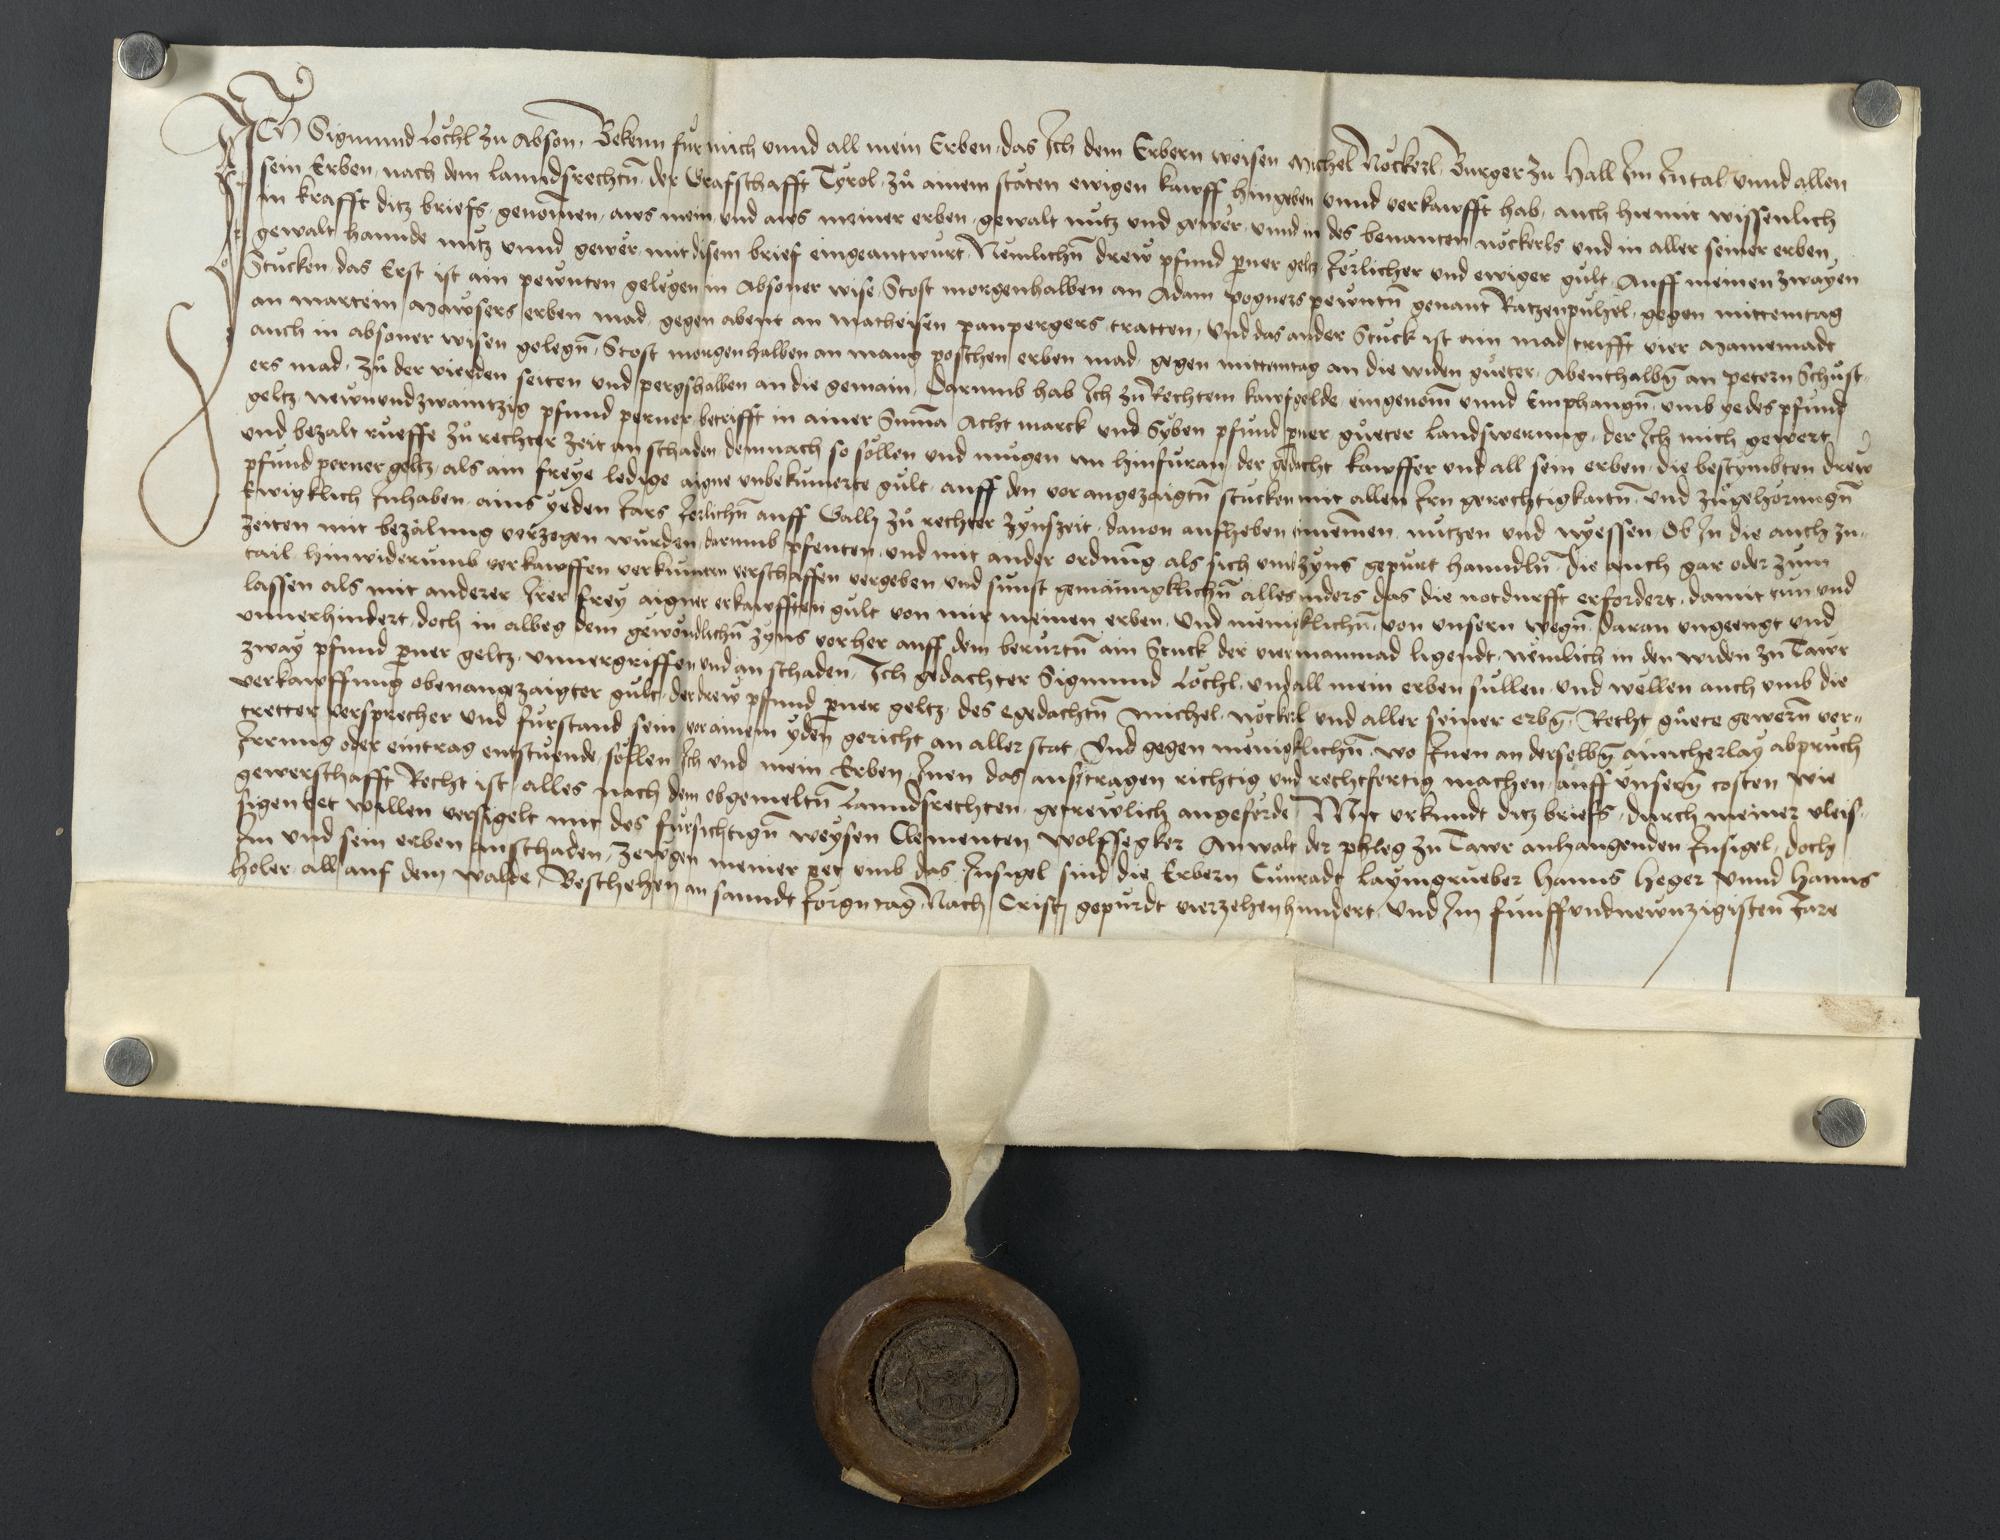 ICh Sigmund Löchl zu Abson, Bekenn für mich unnd all mein Erben, das Ich dem Erbern weisen Michel Nöckerl, Burger zu Hall Im Intal, unnd allen
sein Erben, nach dem lanndsrechtn̄, der Grafschafft Tyrol, zů ainem stäten ewigen kawff hingeben unnd verkawfft hab, auch hiemit wissenlich
in krafft ditz briefs, genomen, aws mein, und aws meiner erben, gewalt nutz und gewer, unnd in des benanten nöckerls und in aller seiner erben,
gewalt hannde nutz unnd gewer, mit disem brief eingeantwurt, Nemlichn̄ drew pfund p̄ner geltz, Jerlicher und ewiger gült, Auff meinen zwayen
Stucken, das Erst ist ain pewnten gelegen in Absoner wise, Stost morgenhalben an Adam pogners pewntn̄ genant Ratzenpuhel, gegen mittemtag
an martein mawsers erben mad, gegen abent an matheysen panpergers, tratten, Und das ander Stuck ist ain mad trifft vier mannemadt
auch in absoner wisen gelegn̄, Stost morgenhalben an mang poschen erben mad, gegen mittemtag an die widen güeter, Abenthalbn̄ an petern Schüst-
ers mad, zů der vierden seiten und pergshalben an die gemain, Darumb hab Ich zů Rechtem kawfgelde, eingenom̄ unnd Emphangn̄, umb yedes pfund
geltz, newnundzwaintzig pfund perner, betrifft in ainer Sum̄a Acht marck und Syben pfund p̄ner gůeter landswerung, der Ich mich gewert
und bezalt rueffe zů rechter zeit an schaden, demnach so söllen und mugen nu hinfüran, der gedacht kawffer und all sein erben, die bestymbten drew
pfund perner geltz, als ain freye ledige aigne unbekumerte gült, auff den vor angezaigtn̄ stucken mit allen Irn gerechtigkaitn̄, und zůgehörungn̄
Ewigklich Inhaben, ains yeden Jars Jerlichn̄ auff Gallj zů rechter zynszeit, davon aufheben innemen, nutzen und nyessen, Ob In die auch zu-
zeiten mit bezalung verzogen wurden, darumb pfenten, und mit ander ordnu̇g als sich umb zyns gepurt hanndln̄, die auch gar oder zum
tail, hinwiderumb verkawffen verkumern verschaffen vergeben und sunst gemainigklichn̄ alles anders das die notdurfft erfordert, damit tun und
lassen als mit anderer Irer frey aigner erkawfften gült von mir meinen erben, Und menigklichn̄, von unsern wegn̄, daran ungeengt und
unnerhindert, doch in albeg dem gewondlichn̄ zyns vorher auff dem berurtn̄ ain Stuck der vier manmad ligendt, nemlich in den widen zu Tawr
zway pfund p̄ner geltz, unnergriffen und an schaden, Ich gedachter Sigmund Löchl, und all mein erben süllen, und wellen auch umb die
verkawffung obenangezaigter gült, der drew pfund p̄ner geltz, des egedachtn̄ Michel, nöckerl und aller seiner erbn̄, Recht gůete gewern̄ ver-
tretter, versprecher und fürstand sein, vor ainem yden gericht an aller stat, Und gegen menigklichn̄, wo Inen an derselbn̄ ainicherlay abpruch
Irrung oder eintrag entstuende, söllen Ich und mein Erben Inen das austragen richtig und rechtfertig machen, auff unsern̄ costen wie
gewerschafft Recht ist, alles nach dem obgemeltn̄ Lanndsrechten, getrewlich angeferde, Mit urkundt ditz briefs, durch meiner vleis-
sigen bet willen versigelt mit des fürsichtign̄ weysen Clementen Wolffsegker Anwalt der phleg zu Tawr anhangenden Insigel, doch
Im und sein erben anschaden, Zewgen meiner pet umb das, Insigel sind die Erbern Cunradt Laymgrueber Hanns Heger Unnd Hanns
holer, all auf dem walde, Beschehen an sanndt Jorgn tag, Nach Cristj gepurdt vierzehenhundert, Und Im funffundnewnzigisten Jare